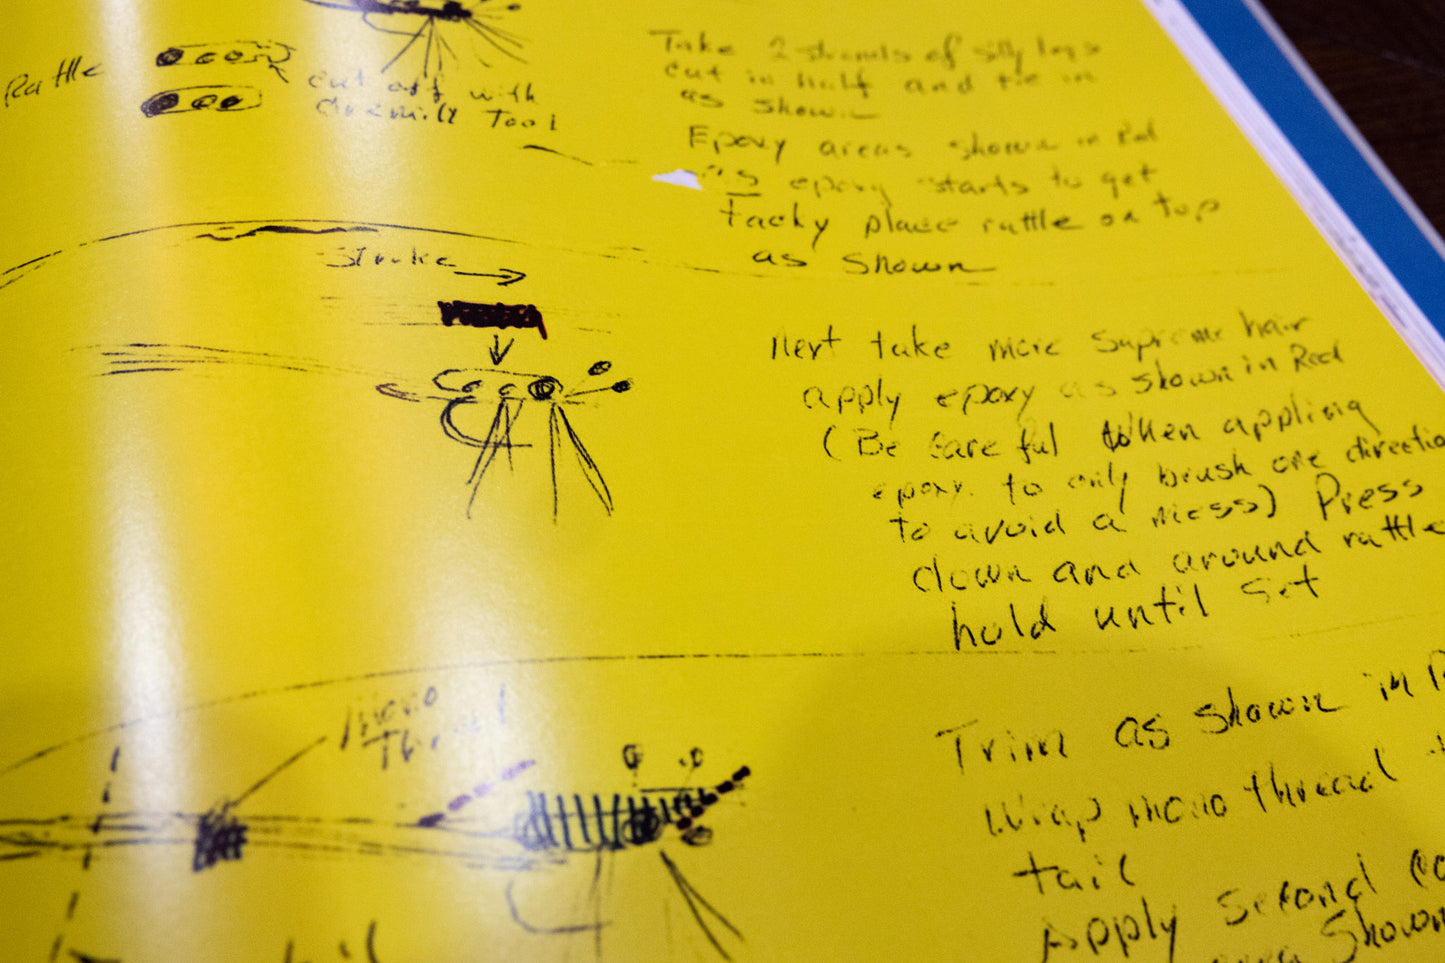 Rattle
cut off with
dremily Tool
Take 2 strands of silly legs
cut in half and tie in
as shown
Epoxy areas shown in Red
as epoxy starts to get
tacky place rattle on top
as shown
Stroke
Next take more Supreme hair
apply epoxy as shown in Red
(Be careful when appling
epoxy. to only brush one directio
to avoid a mess) Press
down and around rattle
hold until set
Mono
Trim as shown in
Wrap mono thread
tail
Apply second co
Shown